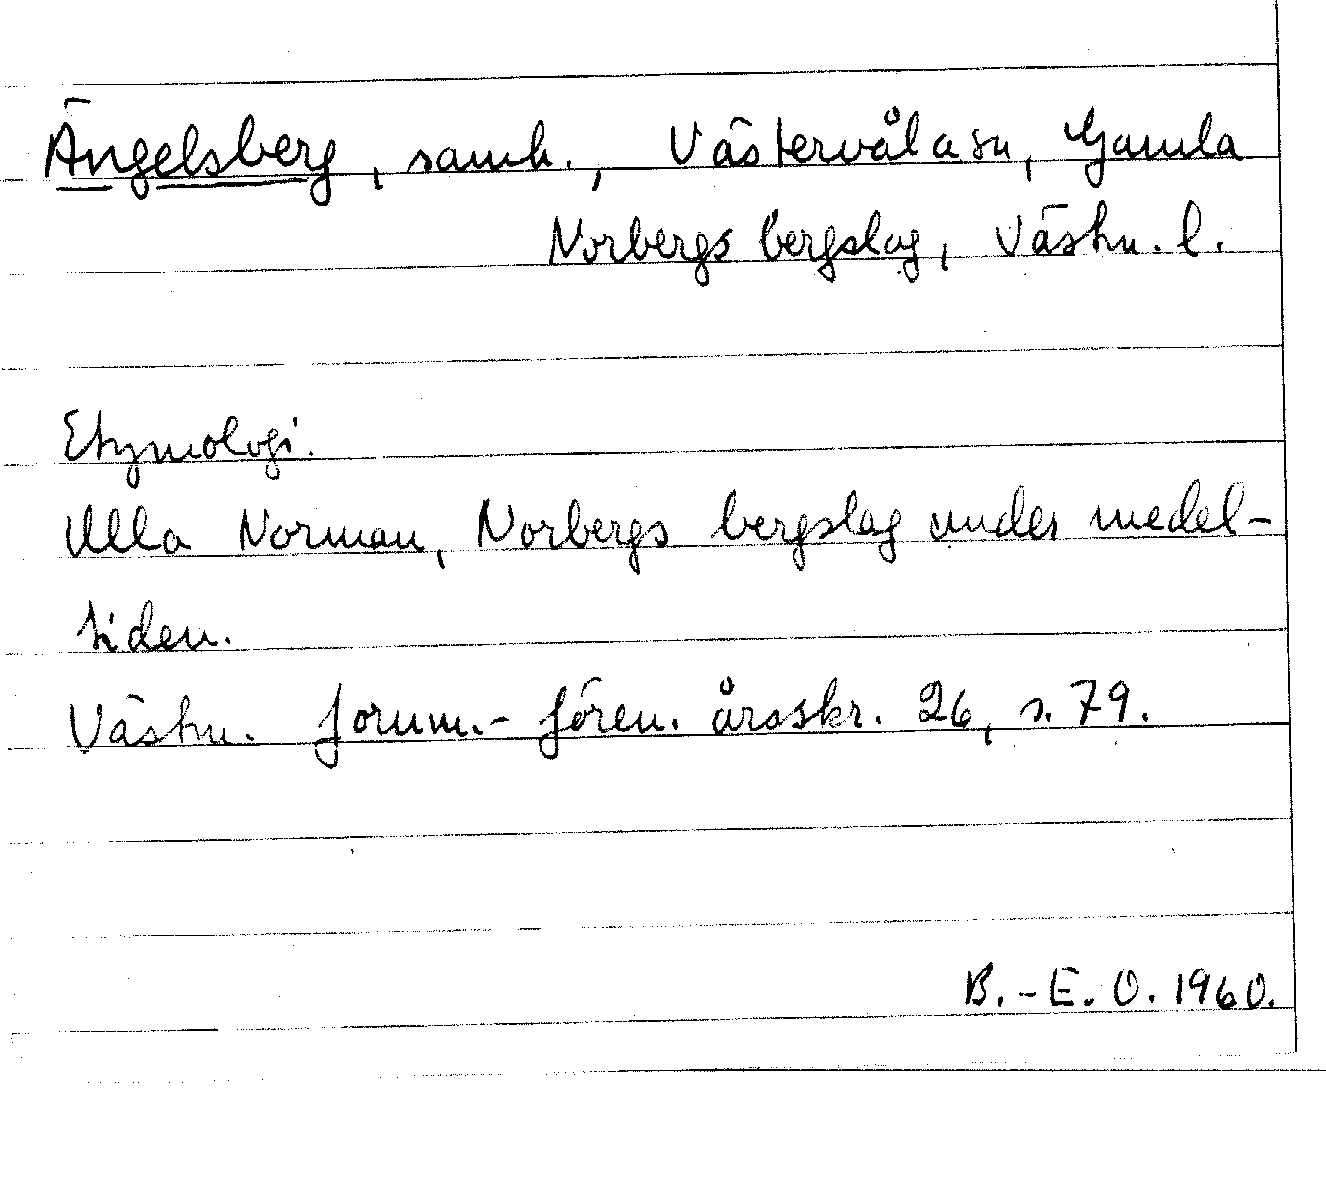 Ängelsberg, samh., Västervåla sn, Gamla
Norbergs bergslag, Västm. l.
Etymologi.
Ulla Norman, Norbergs bergslag under medel-
tiden.
Västm. fornm.-fören. årsskr. 26, s. 79.
B.-E. O. 1960.